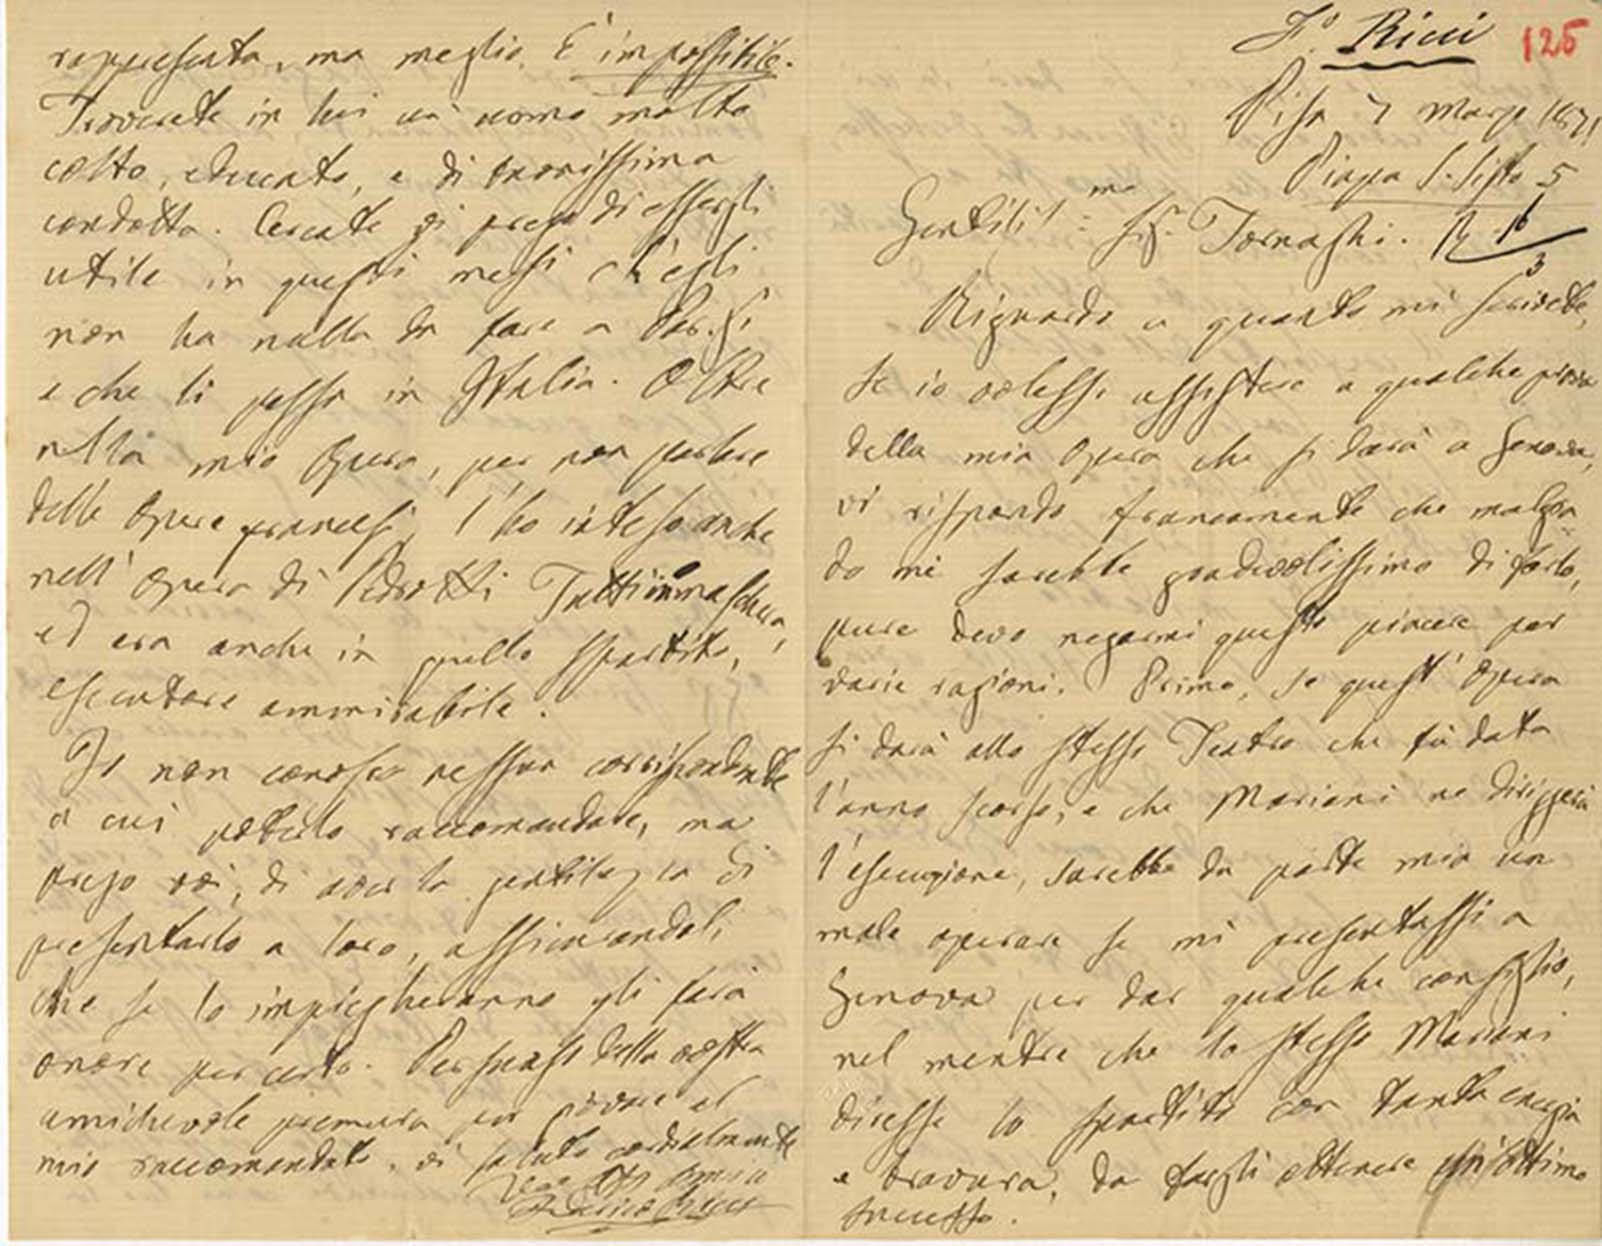 F.º Ricci
125
Pisa 7 Marzo 1871
Piazza S. Sisto 5
Gentilis.mo Sig. Tornaghi. R 16/3
Riguardo a quanto mi scrivete,
se io volessi assistere a qualche prova
della mia Opera che si darà a Genova,
vi rispondo francamente che malgra
do mi sarebbe gradevolissimo di farlo,
pure devo negarmi questo piacere per
varie ragioni. Primo, se quest' Opera
si darà allo stesso Teatro che fù data
l'anno scorso, e che Mariani ne dirigerà
l'esecuzione, sarebbe da parte mia un
male operare se mi presentassi a
Genova per dar qualche consiglio,
nel mentre che lo stesso Mariani
diresse lo spartito con tanta energia
e bravura, da fargli ottenere un'ottimo
successo.
rappresenta, ma meglio. È impossibile.
Troverete in lui un uomo molto
colto, educato, e di bravissima
condotta. Cercate vi prego di essergli
utile in questi mesi ch'egli
non ha nulla da fare a Parigi
e che li passa in Italia. Oltre
nella mia Opera, per non parlare
delle Opere francesi, l'ho inteso anche
nell' Opera di Pedrotti Tutti in maschera,
ed era anche in quello spartito,
esecutore ammirabile.
Io non conosco nessun corrispondente
a cui poterlo raccomandare, ma
prego voi, di aver la gentilezza di
presentarlo a loro, assicurandoli
che se lo impiegheranno gli farà
onore per certo. Persuaso della vostra
amichevole premura per giovare al
mio raccomandato, vi saluto cordialmente
Federico Ricci